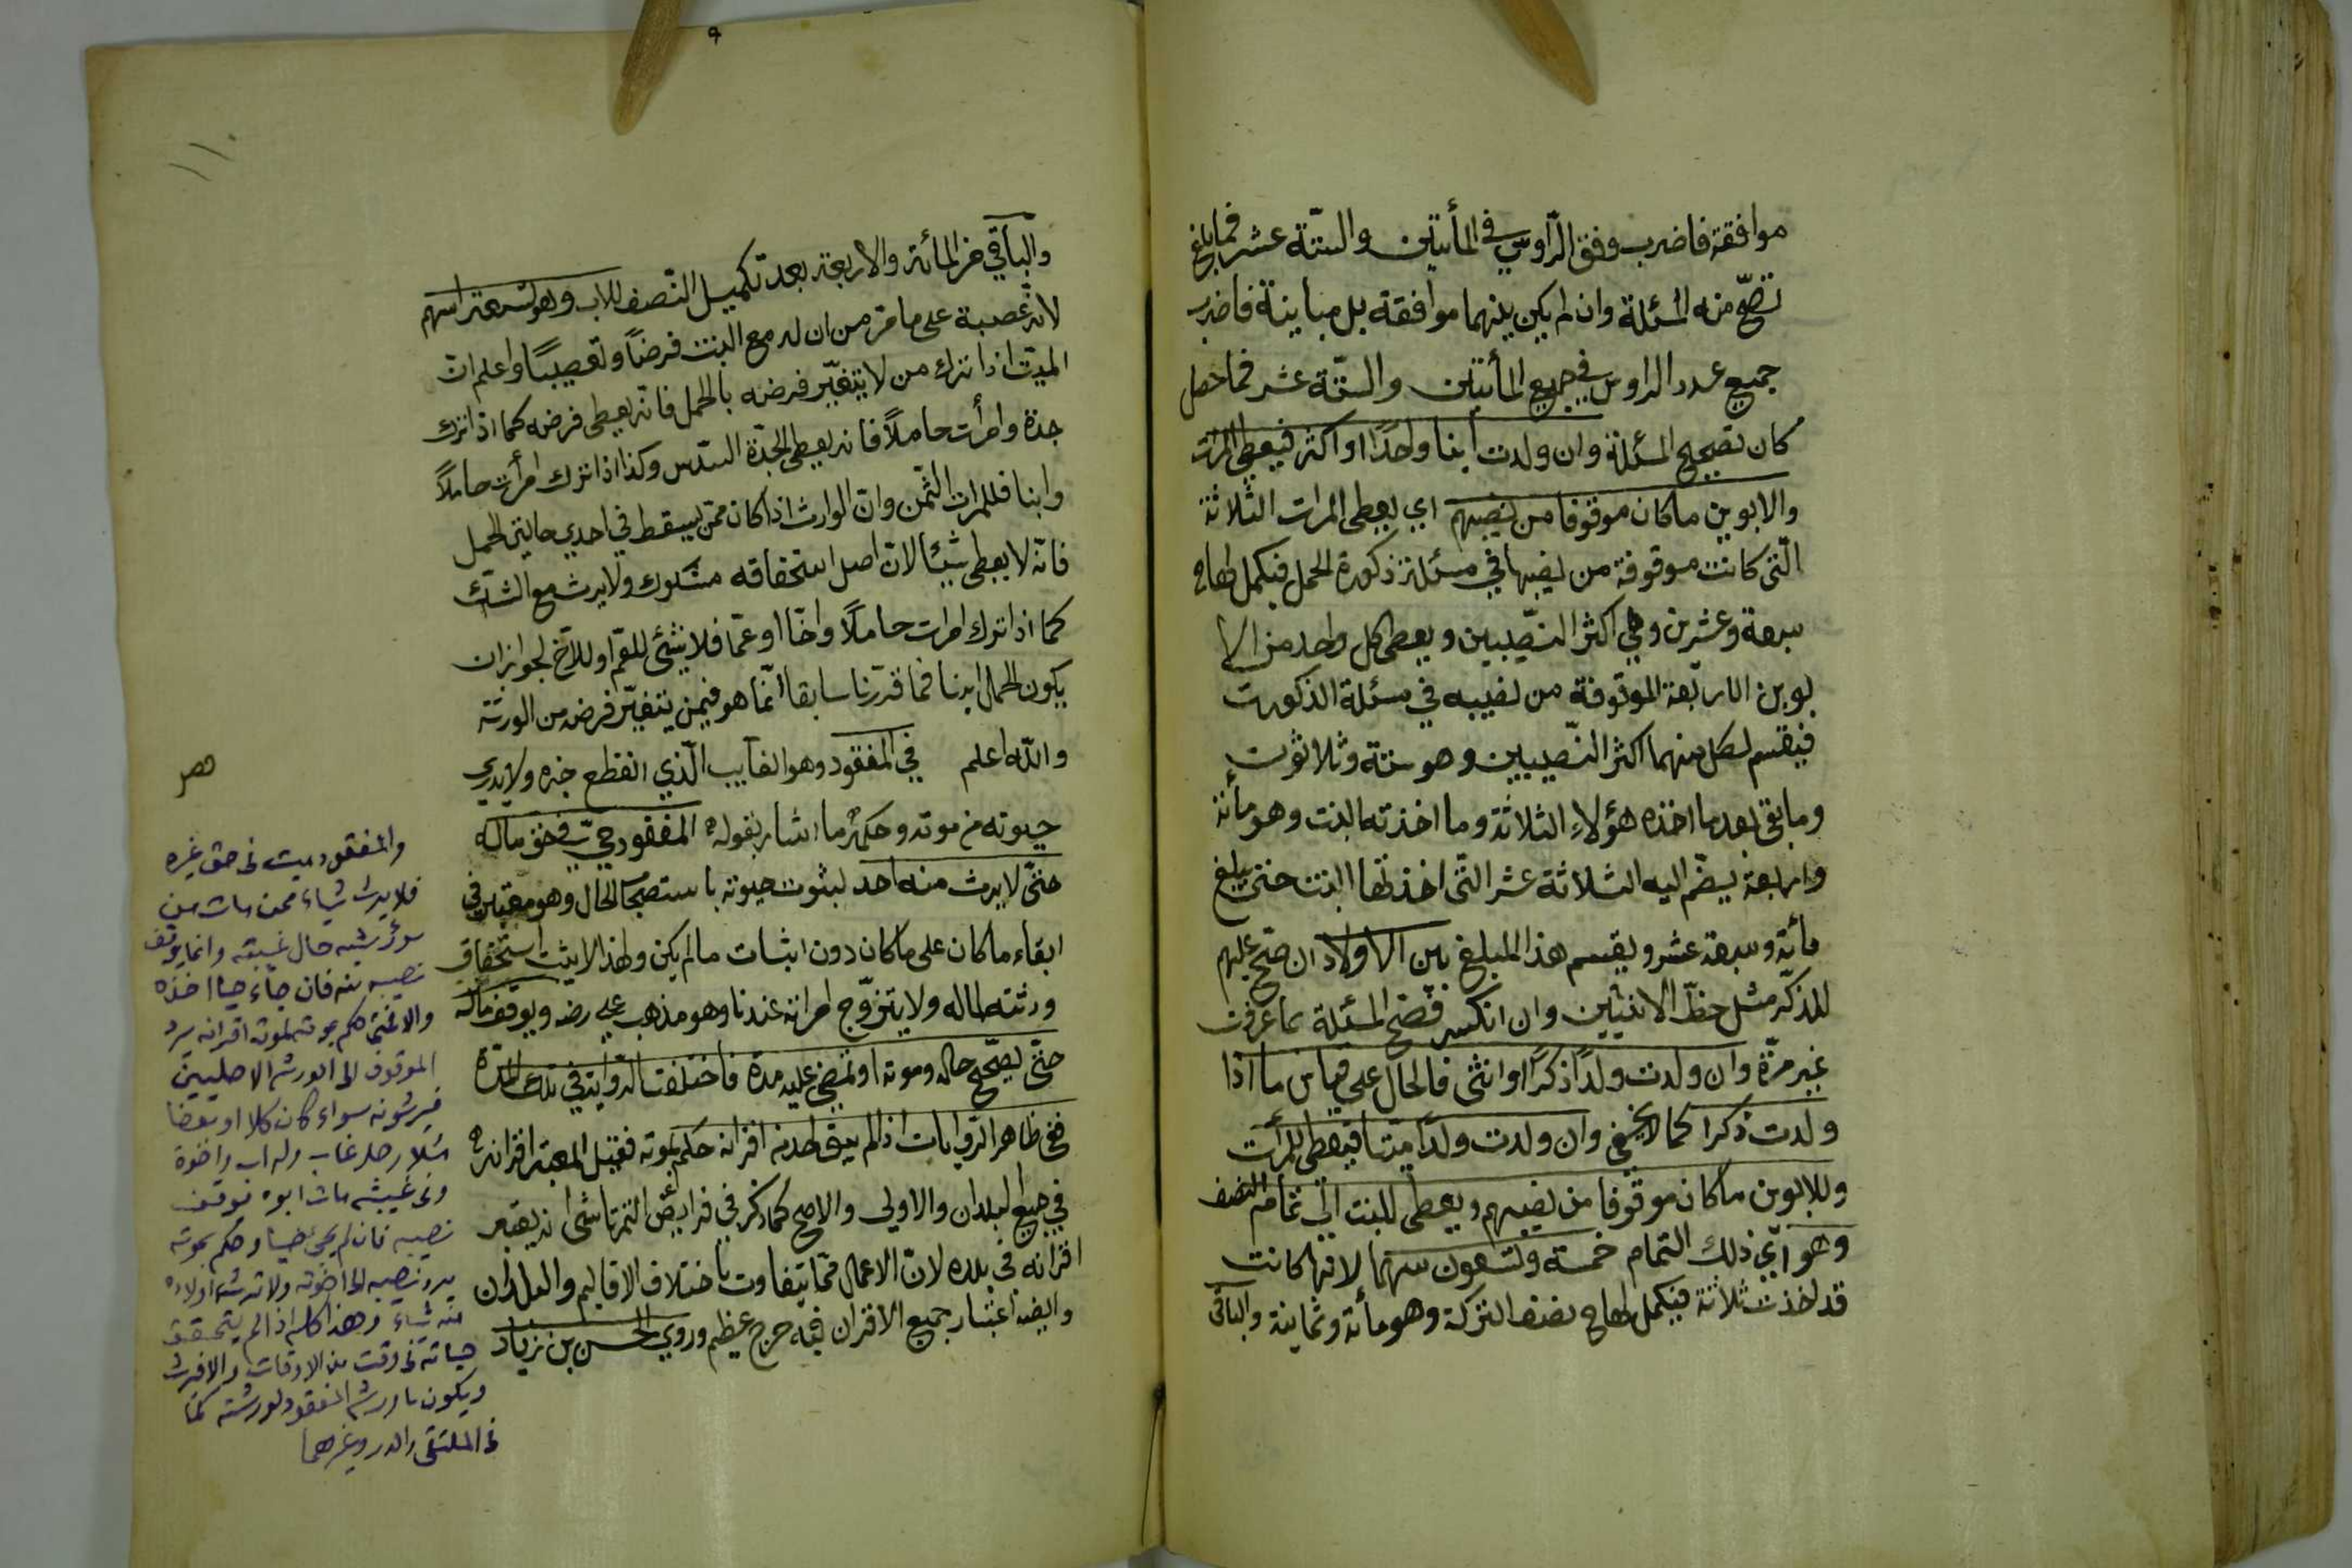 موافقة فاضرب وفق الرّاوس في المأتين والستّة عشر فما بلغ
تصحّ منه المسئلة وان لم يكن بينهما موافقة بل مباينة فاضرب
جميع عدد الراوس في جميع المأتين والستّة عشر فما حصل
كان تصحيح المسئلة وان ولدت ابنا واحدًا او اكثر فيعطى المرات
والابوين ما كان موقوفا من نصيبهم اي يعطى المرات الثلاثة
الّتى كانت موقوفة من نصيبها في مسئلة ذكورة الحمل فيكمل لها
سبعة وعشرين وهي اكثر النصّيبين ويعطى كل واحد من الا
بوين الاربعة الموقوفة من نصيبه في مسئلة الذكورت
فيقسم لكل منهما اكثر النصّيبين وهو ستة وثلاثون
وما بقى بعد ما اخذه هؤلاء الثلاثة وما اخذته البنت وهو مأئة
واربعة يضمّ اليه الثلاثة عشر الّتى اخذتها البنت حتى يبلغ
مأئة وسبعة عشر ويقسم هذا المبلغ بين الاولاد ان صحّ عليهم
للذكر مثل حظّ الانثيين وان انكسر فصحّح المسئلة بما عرفت
غير مرّة وان ولدت ولدًا ذكرًا او انثى فالحال على قياس ما اذا
ولدت ذكرا كما لا يخفى وان ولدت ولدًا ميّتا فيعطى للمرأت
وللابوين ما كان موقوفا من نصيبهم ويعطى للبنت الى تمام النصف
وهو اي ذلك التمام خمسة وتسعون سهما لانها كانت
قد اخذت ثلاثة عشر فيكمل لها نصف التركة وهو مأئة وثمانية والباقى
والبّاقي من المائة والاربعة بعد تكميل النّصف للاب وهو تسعة اسهم
لانّه عصبة على ما مرّ من ان له مع البنت فرضاً وتعصيبًا واعلم ان
الميّت اذا ترك من لا يتغيّر فرضه بالحمل فانّه يعطى فرضه كما اذا ترك
جدّة وامرأت حاملاً فانه يعطى الجدّة السّدس وكذا اذا ترك امرأت حاملاً
وابنا فللمرات الثّمن وان الوارث اذا كان ممّن يسقط في احدي حالتي الحمل
فانّه لا يعطى شيئا لان اصل استحقاقه مشكوك ولا يرث مع الشك
كما اذا ترك امرات حاملاً واخًا او عمّا فلا شئ للعمّ او للاخ لجواز ان
يكون الحمل ابنا فما قدّرنا سابقا انّما هو فيمن يتغيّر فرضه من الورثة
والله اعلم في المفقود وهو الغايب الّذي انقطع خبره ولا يدري
حيوته من موته وحكمه ما اشار بقوله المفقود حيّ في حق ماله
حتّى لا يرث منه احد لثبوت حيوته باستصحاب الحال وهو معتبر في
ابقاء ما كان على ما كان دون اثبات ما لم يكن ولهذا لا يثبت استحقاق
ورثته لماله ولا يتزوّج امراته عندنا وهو مذهب علي رضه ويوقف ماله
حتّى يصحّح حاله وموته او تمضى عليه مدة فاختلفت الرّواية في تلك المدّة
ففى ظاهر الرّوايات اذا لم يبق احد من اقرانه حكم بموته فقيل المعتبر اقرانه
في جميع البلدان والاولى والاصح كما ذكر في فرايض التمرتاشى انه يعتبر
اقرانه في بلده لان الاعمال ممّا يتفاوت باختلاف الاقاليم والبلدان
وايضه اعتبار جميع الاقران فيه حرج عظيم وروي الحسن بن زياد
والمفقود ميت فى حق غيره
فلا يرث شياء ممن مات من
مورثيه حال غيبته وانما يوقف
نصيبه منه فان جاء حيا اخذه
الموقوف الى الورثه الاصليين
فيرثونه سواء كان كلا او بعضا
مثلا رجل غاب وله اب واخوة
وفى غيبته مات ابوه فوقف
نصيبه فان لم يجئ حيا وحكم بموته
يرد نصيبه الى اخوته ولا ترث اولاده
منه شياء وهذا كله اذا لم يتحقق
حياته فى وقت من الاوقات والا فيرث
ويكون ما ورثه المفقود لورثته كما
فى الملتقى والدر وغيرهما